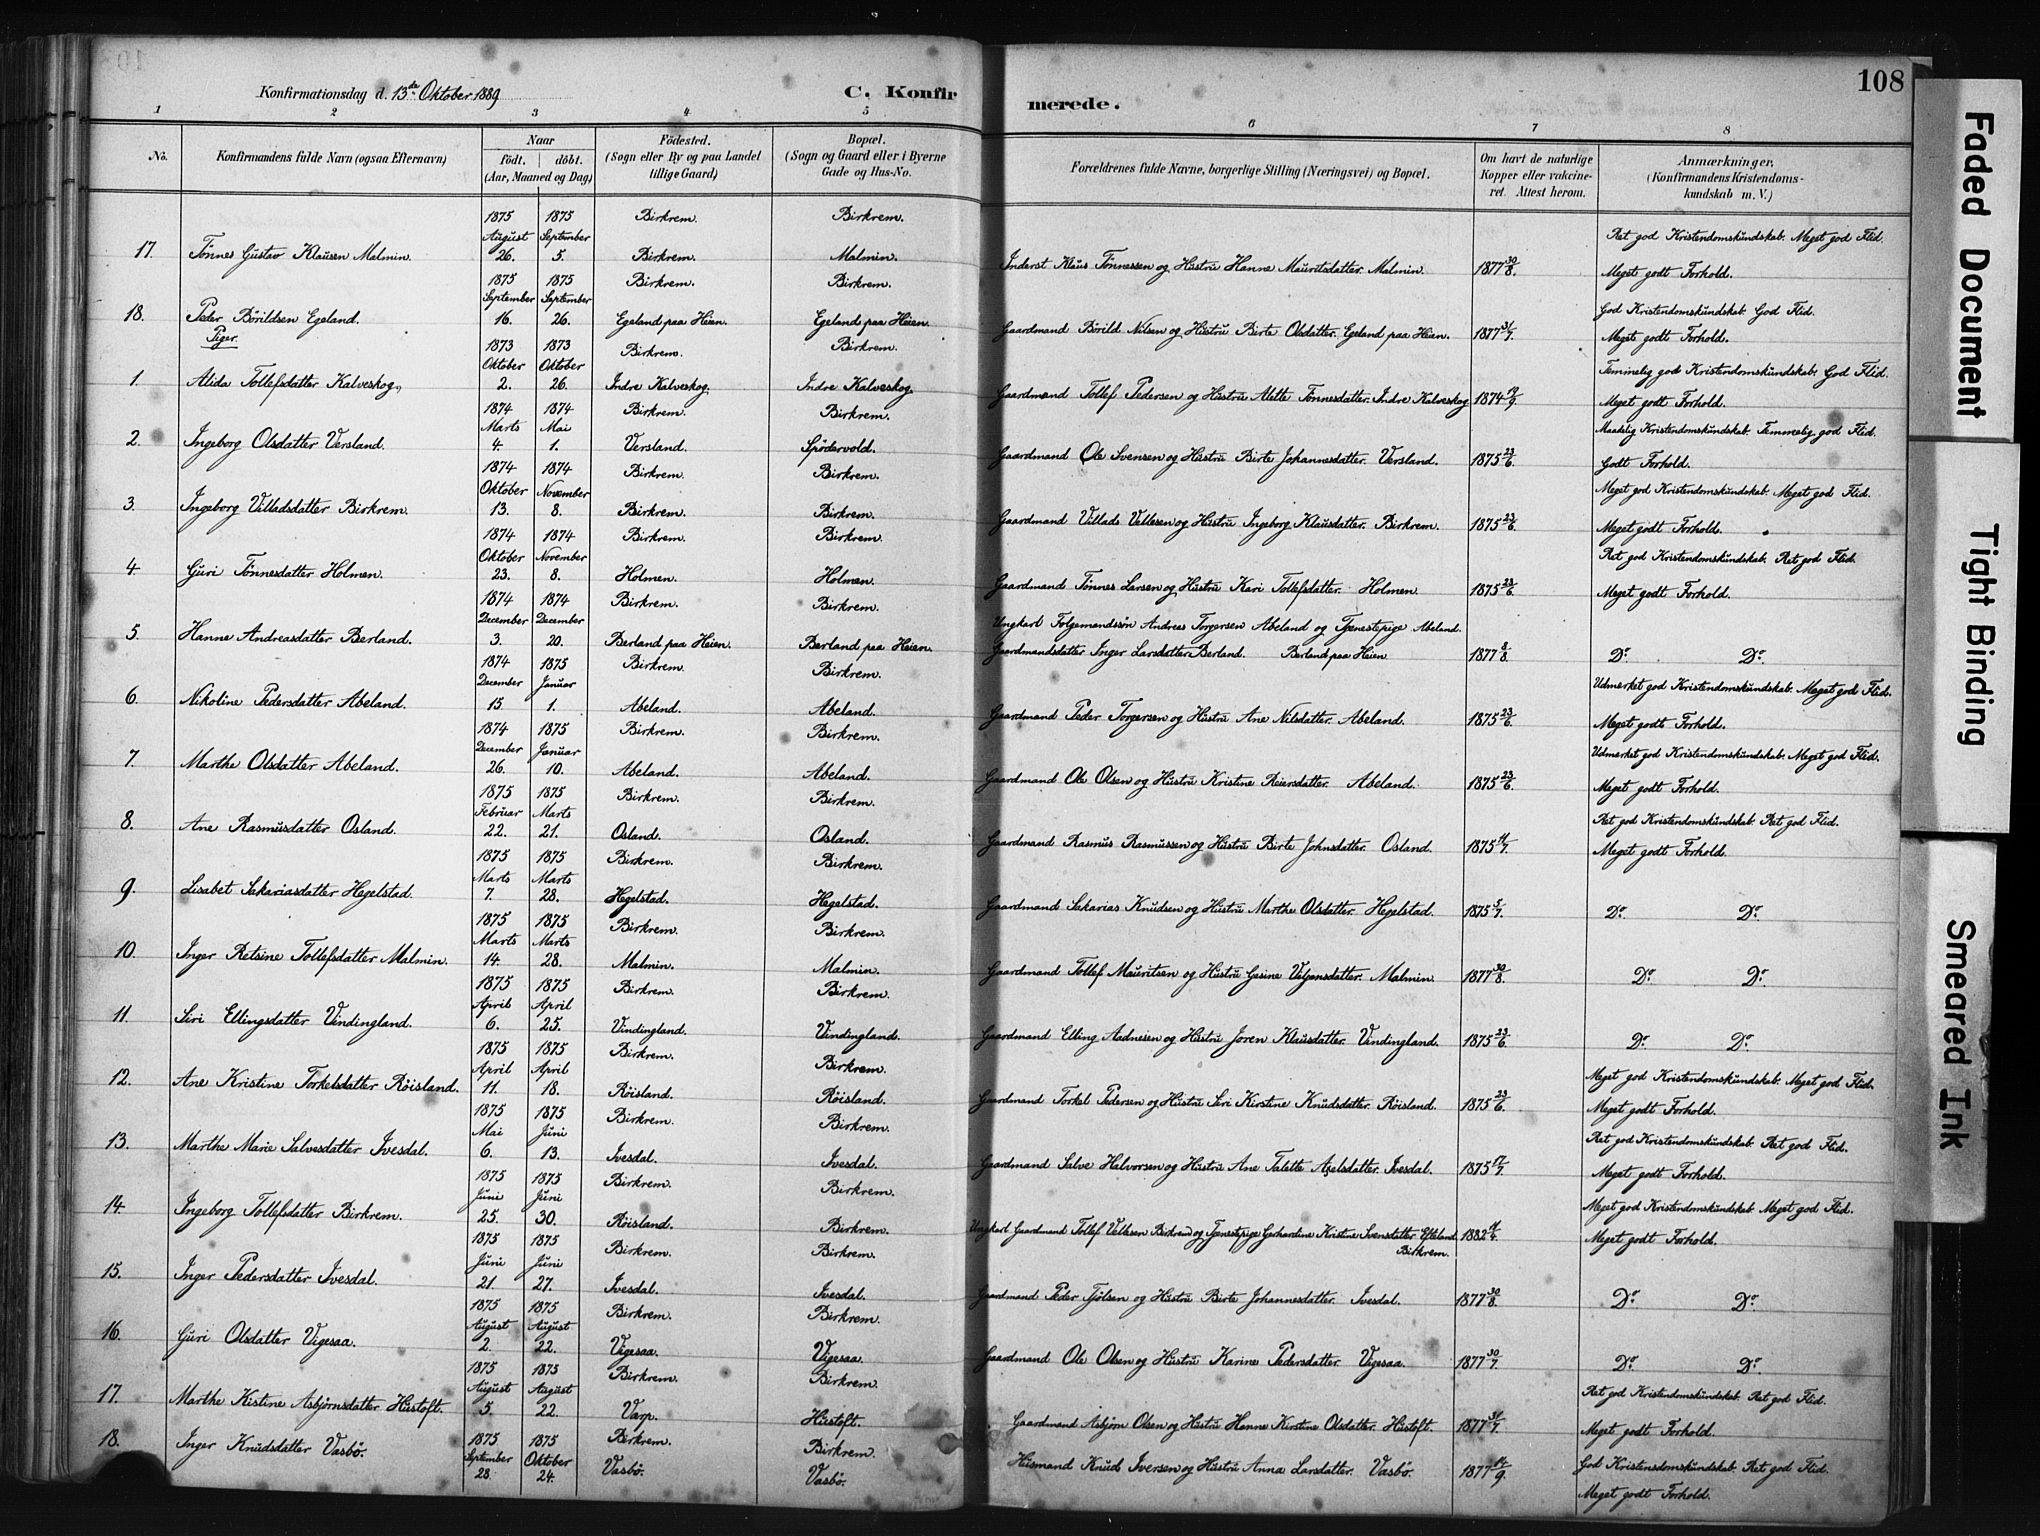 108
Konfirmationsdag d. 13de Oktober 1889
C. Konfirmerede.
1 2 3 4 5 6 7 8
No.
Konfirmandens fulde Navn (ogsaa Efternavn)
Naar
födt. döbt.
(Aar, Maaned og Dag)
Födested.
(Sogn eller By og paa Landet
tillige Gaard)
Bopæl.
(Sogn og Gaard eller i Byerne
Gade og Hus-No.
Forældrenes fulde Navne, borgerlige Stilling (Næringsvei) og Bopæl.
Om havt de naturlige
Kopper eller vakcine-
ret. Attest herom.
Anmærkninger,
(Konfirmandens Kristendoms-
kundskab m. V.)
1875 1875 Birkrem. Birkrem.
August September Ret god Kristendomskundskab. Meget god Flid.
17. Tönnes Gustav Klausen Malmin. 26. 5. Birkrem. Malmin. Inderst Klaus Tönnessen og Hustru Hanne Mauritsdatter. Malmin. 1877 30/8. Meget godt Forhold.
1875 1875 Birkrem. Birkrem.
September September God Kristendomskundskab. God Flid.
18. Peder Börildsen Egeland. 16. 26. Egeland paa Heien. Egeland paa Heien. Gaardmand Börild Nilsen og Hustru Birte Olsdatter. Egeland paa Heien. 1877 31/7. Meget godt Forhold.
Piger.
1873 1873 Birkrem. Birkrem.
Oktober Oktober Temmelig god Kristendomskundskab. God Flid.
1. Alida Tollefsdatter Kalveskog. 2. 26. Indre Kalveskog. Indre Kalveskog. Gaardmand Tollef Pedersen og Hustru Alette Tönnesdatter. Indre Kalveskog 1874 /9. Meget godt Forhold.
1874 1874 Birkrem. Birkrem.
Marts Mai Maadelig Kristendomskundskab. Temmelig god Flid.
2. Ingeborg Olsdatter Versland. 4. 1. Versland. Spödervold. Gaardmand Ole Svensen og Hustru Birte Johannesdatter. Versland. 1875 23/6. Godt Forhold.
1874 1874 Birkrem. Birkrem.
Oktober November Meget god Kristendomskundskab. Meget god Flid.
3. Ingeborg Villadsdatter Birkrem. 13. 8. Birkrem. Birkrem. Gaardmand Villads Vellesen og Hustru Ingeborg Klausdatter. Birkrem. 1875 23/6. Meget godt Forhold.
1874 1874 Birkrem. Birkrem.
Oktober November Ret god Kristendomskundskab. Ret god Flid.
4. Guri Tönnesdatter Holmen. 23. 8. Holmen. Holmen. Gaardmand Tönnes Larsen og Hustru Kari Tollefsdatter. Holmen. 1875 23/6. Meget godt Forhold.
1874 1874 Birkrem. Birkrem.
December December Ungkarl Folgemandssön Andreas Torgersen Abeland og Tjenestepige Abeland.
5. Hanne Andreasdatter Berland. 3. 20. Berland paa Heien. Berland paa Heien. Gaardmandsdatter Inger Larsdatter Berland. Berland paa Heien 1877 8/8. Do. Do.
1874 1875 Birkrem. Birkrem.
December Januar Udmerket god Kristendomskundskab. Meget god Flid.
6. Nikoline Pedersdatter Abeland. 15. 1. Abeland. Abeland. Gaardmand Peder Torgersen og Hustru Ane Nilsdatter. Abeland. 1875 23/6. Meget godt Forhold.
1874 1875 Birkrem. Birkrem.
December Januar Udmerket god Kristendomskundskab. Meget god Flid.
7. Marthe Olsdatter Abeland. 26. 10. Abeland. Abeland. Gaardmand Ole Olsen og Hustru Kristine Reiersdatter. Abeland. 1875 23/6. Meget godt Forhold.
1875 1875 Birkrem. Birkrem.
Februar Marts Ret god Kristendomskundskab. Ret god Flid.
8. Ane Rasmusdatter Osland. 22. 21. Osland. Osland. Gaardmand Rasmus Rasmussen og Hustru Birte Johnsdatter. Osland. 1875 11/7. Meget godt Forhold.
1875 1875 Birkrem. Birkrem.
Marts Marts
9. Lisabet Sakariasdatter Hegelstad. 7. 28. Hegelstad. Hegelstad. Gaardmand Sakarias Knudsen og Hustru Marthe Olsdatter. Hegelstad. 1875 5/7. Do. Do.
1875 1875 Birkrem. Birkrem.
Marts Marts
10. Inger Retsine Tollefsdatter Malmin. 14. 28. Malmin. Malmin. Gaardmand Tollef Mauritsen og Hustru Gesine Veljensdatter. Malmin. 1877 30/8. Do. Do.
1875 1875 Birkrem. Birkrem.
April April
11. Siri Ellingsdatter Vindingland. 6. 25. Vindingland. Vindingland. Gaardmand Elling Aadnesen og Hustru Joren Klausdatter. Vindingland. 1875 23/6. Do. Do.
1875 1875 Birkrem. Birkrem.
April April Meget god Kristendomskundskab. Meget god Flid.
12. Ane Kristine Torkelsdatter Röisland. 11. 18. Röisland. Röisland. Gaardmand Torkel Pedersen og Hustru Siri Kirstine Knudsdatter. Röisland. 1875 23/6. Meget godt Forhold.
1875 1875 Birkrem. Birkrem.
Mai Juni Ret god Kristendomskundskab. Ret god Flid.
13. Marthe Marie Salvesdatter Ivesdal. 6. 13. Ivesdal. Ivesdal. Gaardmand Salve Halvorsen og Hustru Ane Talette Axelsdatter. Ivesdal. 1875 17/7. Meget godt Forhold.
1875 1875 Birkrem. Birkrem.
Juni Juni Meget god Kristendomskundskab. Meget god Flid.
14. Ingeborg Tollefsdatter Birkrem. 25. 30. Röisland. Birkrem. Ungkarl Gaardmand Tollef Vellesen Birkrem og Tjenestepige Gerhardine Kristine Svensdatter Efteland. 1882 /4. Meget godt Forhold.
Birkrem.
1875 1875 Birkrem. Birkrem.
Juni Juni
15. Inger Pedersdatter Ivesdal. 21. 27. Ivesdal. Ivesdal. Gaardmand Peder Tjölsen og Hustru Birte Johannesdatter. Ivesdal. 1877 30/8. Do. Do.
1875 1875 Birkrem. Birkrem.
August August
16. Guri Olsdatter Vigesaa. 2. 22. Vigesaa. Vigesaa. Gaardmand Ole Olsen og Hustru Karine Pedersdatter. Vigesaa. 1877 30/7. Do. Do.
1875 1875 Birkrem. Birkrem.
August August Ret god Kristendomskundskab. Ret god Flid.
17. Marthe Kistine Asbjörnsdatter Hustoft. 5. 22. Varp. Hustoft. Gaardmand Asbjörn Olsen og Hustru Hanne Kirstine Olsdatter. Hustoft. 1877 31/7. Meget godt Forhold.
1875 1875 Birkrem. Birkrem.
September Oktober God Kristensdomskundskab. Ret god Flid.
18. Inger Knudsdatter Vasbö. 28. 24. Vasbö. Vasbö. Husmand Knud Iversen og Hustru Anna Larsdatter. Vasbö. 1877 /9. Meget godt Forhold.
Faded Document
Tight Binding
Smeared Ink